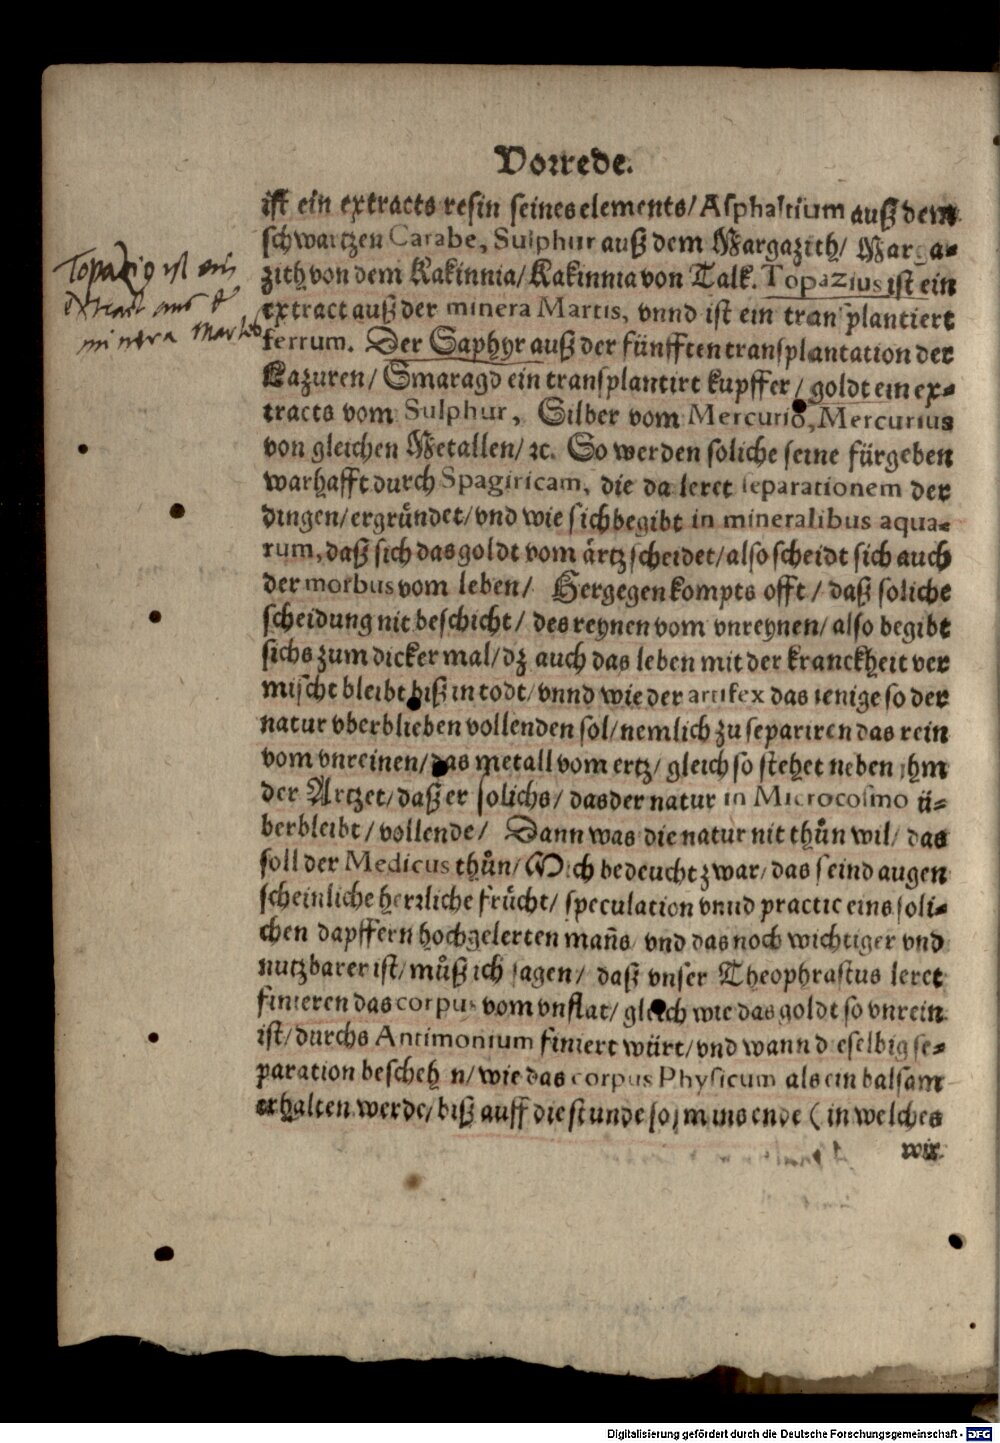 Vorrede.
ist ein extracts resin seines elements/ Asphaltium auß dem
schwartzen Carabe, Sulphur auß dem Margazith/ Marga-
zith von dem Kakinnia/ Kakinnia von Talk. Topazius ist ein
extract auß der minera Martis, vnnd ist ein transplantiert
ferrum. Der Saphyr auß der fünfften transplantation der
Lazuren/ Smaragd ein transplantirt kupffer/ goldt ein ex-
tracts vom Sulphur, Silber vom Mercurio, Mercurius
von gleichen Metallen/ ꝛc. So werden soliche seine fürgeben
warhafft durch Spagiricam, die da leret separationem der
dingen/ ergründet/ vnd wie sich begibt in mineralibus aqua-
rum, daß sich das goldt vom ärtz scheidet/ also scheidt sich auch
der morbus vom leben/ Hergegen kompts offt/ daß soliche
scheidung nit beschicht/ des reynen vom vnreynen/ also begibt
sichs zum dicker mal/ dz auch das leben mit der kranckheit ver
mischt bleibt biß in todt/ vnnd wie der artifex das ienige so der
natur vberblieben vollenden sol/ nemlich zu separiren das rein
vom vnreinen/ das metall vom ertz/ gleich so stehet neben jhm
der Artzet/ daß er solichs/ das der natur in Microcosmo ü-
berbleibt/ vollende/ Dann was die natur nit thůn wil/ das
soll der Medicus thůn/ Mich bedeucht zwar/ das seind augen
scheinliche herrliche frücht/ speculation vnnd practic eins soli-
chen dapffern hochgelerten mañs/ vnd das noch wichtiger vnd
nutzbarer ist/ můß ich sagen/ daß vnser Theophrastus leret
finieren das corpus vom vnflat/ gleich wie das goldt so vnrein
ist/ durchs Antimonium finiert würt/ vnd wann dieselbig se-
paration beschehen/ wie das corpus Physicum als ein balsam
erhalten werde/ biß auff die stunde so jm ins ende ( in welches
wir
Topazio ist ein
extract aus der
minera Martis
Digitalisierung gefördert durch die Deutsche Forschungsgemeinschaft - DFG